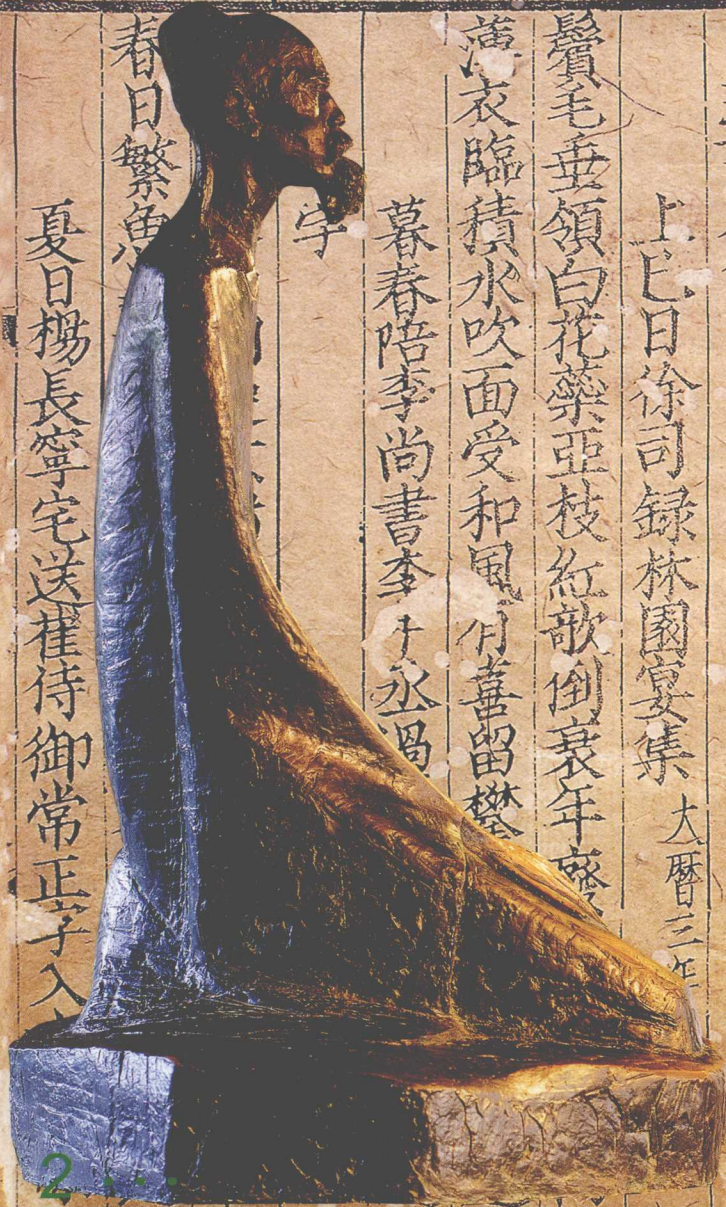 上巳日徐司録林園宴集 大暦三年
鬢毛垂領白花藥亞枝紅欹倒衰年廢
薄衣臨積水吹面受和風有喜留攀
暮春陪李尚書李中丞過
字
春日繁魚
夏日楊長寧宅送崔待御常正字入
2